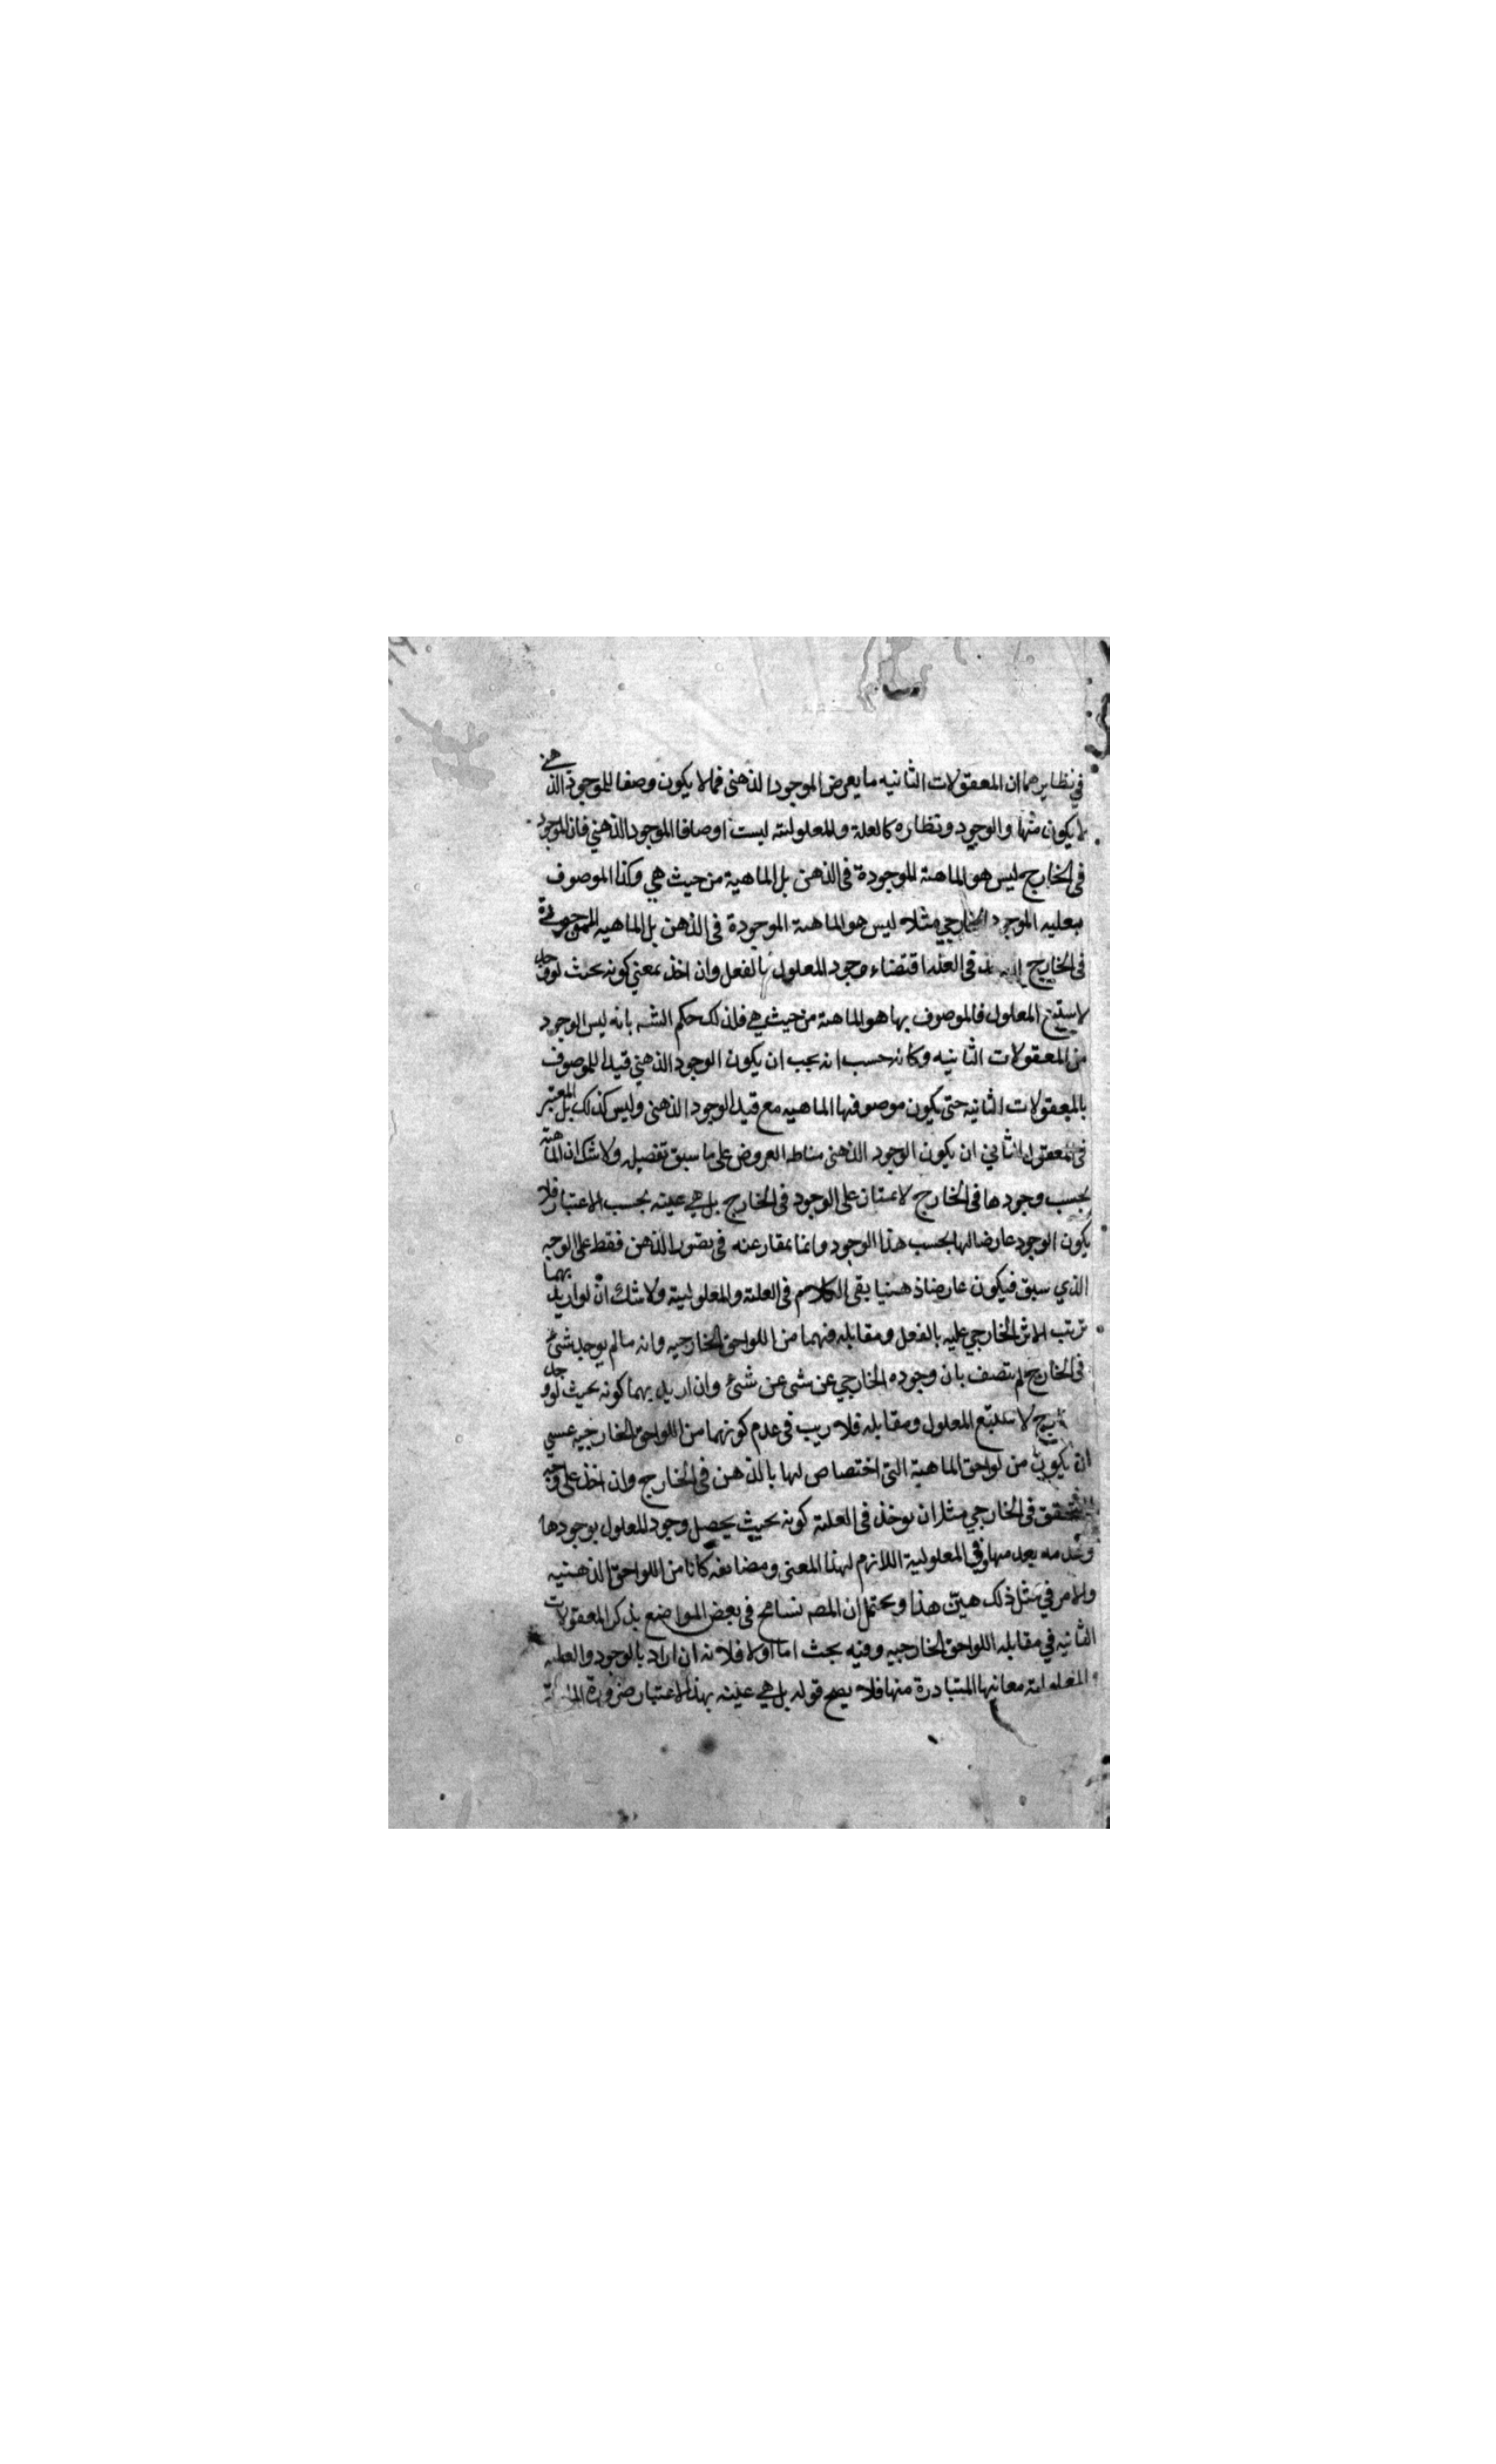 في نظايرهما ان المعقولات الثانيه ما يعرض الموجود الذهنى فما لا يكون وصفا للموجود الذهني
لا يكون منها والوجود ونظاره كالعلة والمعلولية ليست اوصافا للموجود الذهني فان الموجود
فى الخارج ليس هو الماهية الموجودة فى الذهن بل الماهية من حيث هي وكذا الموصوف
بعليه الموجود الخارجي مثلا ليس هو الماهية الموجودة فى الذهن بل الماهيه الموجودة
فى الخارج فى العلة اقتضاء وجود المعلول بالفعل وان اخذ بمعني كونه بحيث لو وجد
لاستتبع المعلول فالموصوف بها هو الماهية من حيث هي فلذلك حكم الشـ بانه ليس الوجود
من المعقولات الثانيه وكانه حسب انه يجب ان يكون الوجود الذهني قيدا للموصوف
بالمعقولات الثانية حتى يكون موصوفها الماهيه مع قيد الوجود الذهنى وليس كذلك بل المعتبر
فى المعقول الثاني ان يكون الوجود الذهنى مناط العروض على ما سبق تفصيله ولا شك ان الماهية
بحسب وجودها فى الخارج لا يمتاز على الوجود فى الخارج بل هي عينه بحسب الاعتبار فلا
يكون الوجود عارضا لها بحسب هذا الوجود وانما عنه فى الذهن فقط على الوجه
الذي سبق فيكون عارضا ذهنيا بقى الكلام فى العلية والمعلولية ولا شك ان لو اريد بهما
ترتب الاثر الخارجي عليه بالفعل ومقابله فهما من اللواحق الخارجيه وانه ما لم يوجد شئ
فى الخارج لم يتصف بان وجوده الخارجي عن شى عن شئ وان اريد بهما كونه بحيث لو وجد
لاستتبع المعلول ومقابله فلا ريب فى عدم كونهما من اللواحق الخارجيه عسي
ان يكون من لواحق الماهية التى اختصاص لها بالذهن فى الخارج وان اخذ على وجه
التحقق فى الخارجي مثل ان يوخذ فى العلية كونه بحيث يحصل وجود المعلول بوجودها
وعدمه بعدمها وفي المعلولية اللازم لهذا المعنى ومضايفه كانا من اللواحق الذهنيه
والامر في مثل ذلك هيّن هذا ويحتمل ان المصـ تسامح فى بعض المواضع بذكر المعقولات
الثانيه في مقابله اللواحق الخارجيه وفيه بحث اما اولا فلانه ان اراد بالوجود والعلية
والمعلولية معانيها المتبادرة منها فلا يصح قوله بل هي عينه بهذا الاعتبار ضرورة